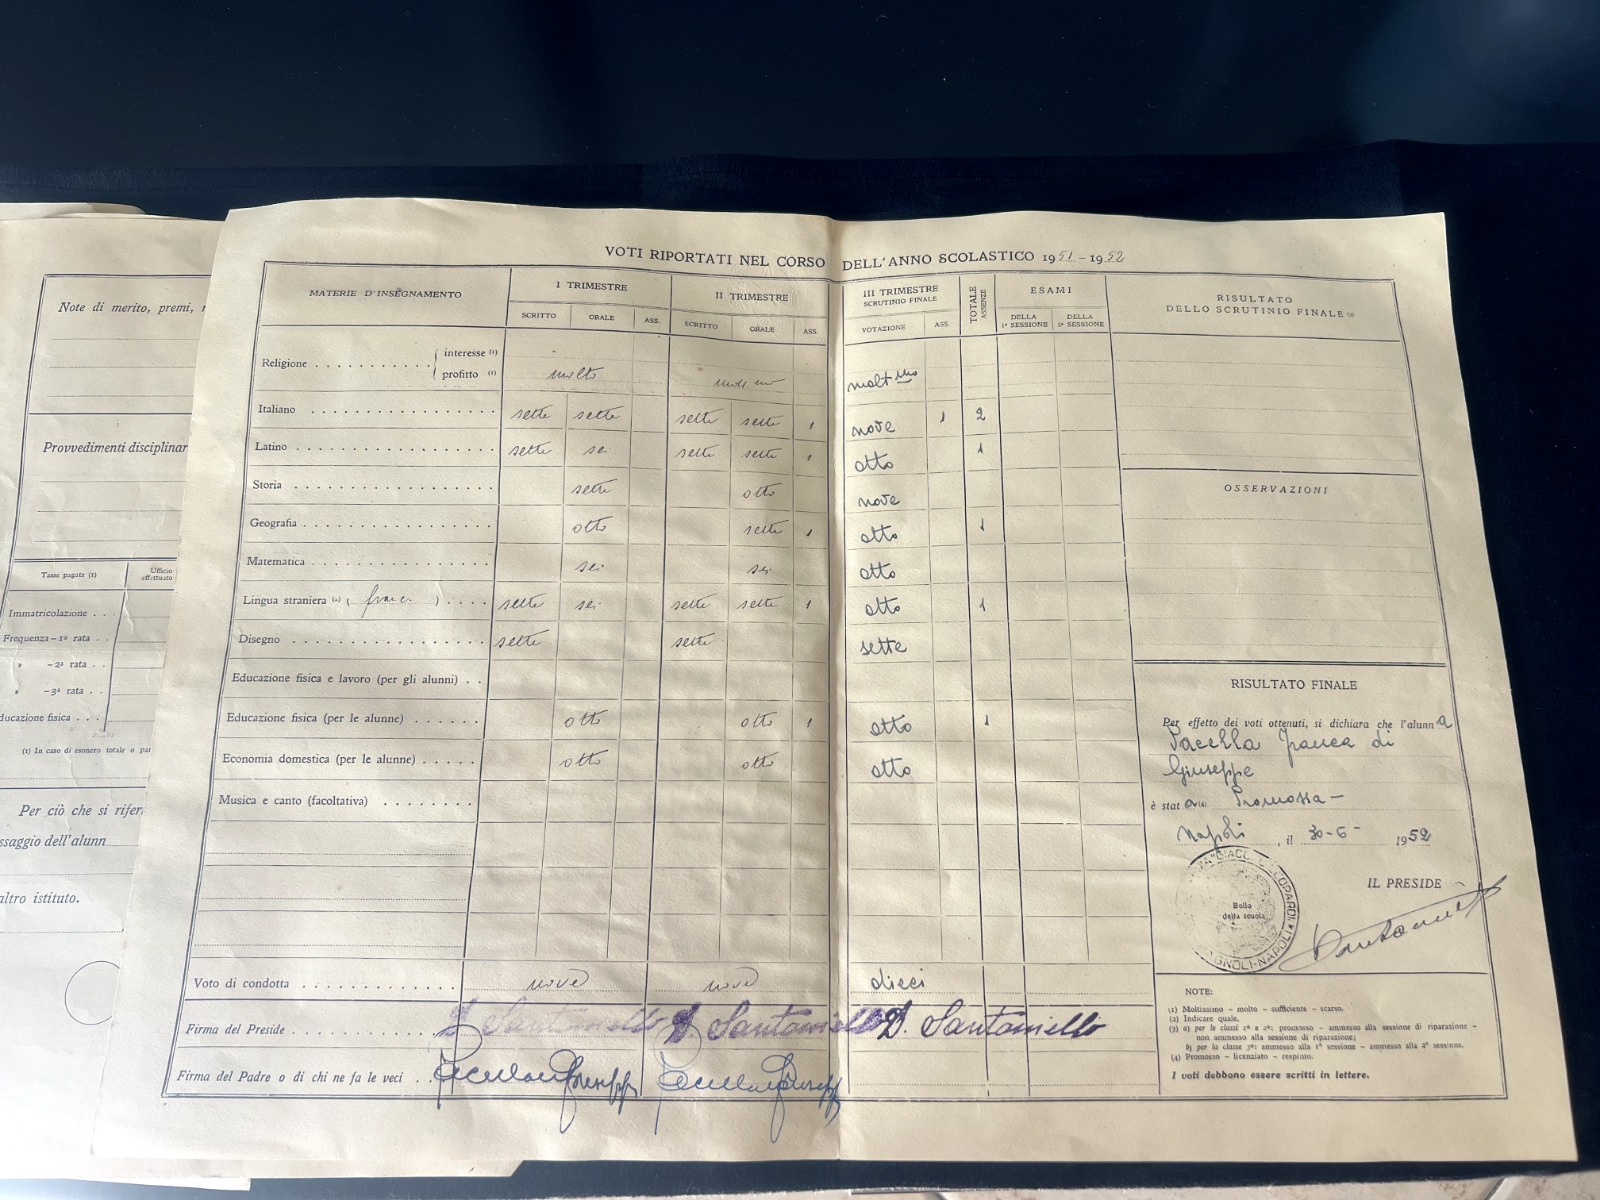 Note di merito, premi,
Provvedimenti disciplinar
Tasse pagate (1)
Ufficio
effettuato
Immatricolazione . . .
Frequenza – 1ª rata . .
» – 2ª rata . .
» – 3ª rata . .
ducazione fisica . . .
(1) In caso di esonero totale o par
Per ciò che si riferi
ssaggio dell'alunn
altro istituto.
VOTI RIPORTATI NEL CORSO DELL'ANNO SCOLASTICO 1951 – 1952
MATERIE D'INSEGNAMENTO I TRIMESTRE II TRIMESTRE III TRIMESTRE SCRUTINIO FINALE TOTALE ASSENZE ESAMI
SCRITTO ORALE ASS. SCRITTO ORALE ASS. VOTAZIONE ASS. DELLA 1ª SESSIONE DELLA 2ª SESSIONE
Religione interesse (1)
profitto (1) molto molt mo
Italiano sette sette sette sette 1 nove 1 2
Latino sette sei sette sette 1 otto 1
Storia sette otto nove
Geografia otto sette 1 otto 1
Matematica sei sei otto
Lingua straniera (2) ( franc. ) sette sei sette sette 1 otto 1
Disegno sette sette sette
Educazione fisica e lavoro (per gli alunni) . .
Educazione fisica (per le alunne) otto otto 1 otto 1
Economia domestica (per le alunne) otto otto otto
Musica e canto (facoltativa)
Voto di condotta nove nove dieci
Firma del Preside D. Santaniello D. Santaniello D. Santaniello
Firma del Padre o di chi ne fa le veci . . Pacella Giuseppe Pacella Giuseppe
RISULTATO
DELLO SCRUTINIO FINALE (3)
OSSERVAZIONI
RISULTATO FINALE
Per effetto dei voti ottenuti, si dichiara che l'alunna
Pacella Franca di
Giuseppe
è stata (4) Promossa –
Napoli, il 30-6- 1952
IL PRESIDE
Santaniello
GIAC. LEOPARDI
BAGNOLI-NAPOLI
Bollo
della scuola
NOTE:
(1) Moltissimo – molto – sufficiente – scarso.
(2) Indicare quale.
(3) a) per le classi 1ª e 2ª: promosso – ammesso alla sessione di riparazione –
non ammesso alla sessione di riparazione;
b) per la classe 3ª: ammesso alla 1ª sessione – ammesso alla 2ª sessione.
(4) Promosso – licenziato – respinto.
I voti debbono essere scritti in lettere.